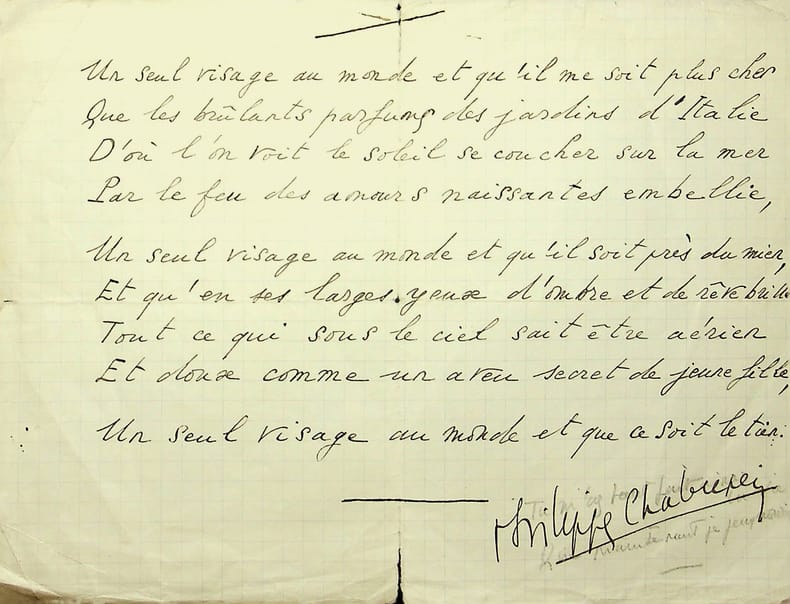 Un seul visage au monde et qu'il me soit plus cher
Que les brûlants parfums des jardins d'Italie
D'où l'on voit le soleil se coucher sur la mer
Par le feu des amours naissantes embellie,
Un seul visage au monde et qu'il soit près du mien,
Et qu'en ses larges yeux d'ombre et de rêve brille
Tout ce qui sous le ciel sait être aérien
Et doux comme un aveu secret de jeune fille,
Un seul visage au monde et que ce soit le tien.
Philippe Chabaneix